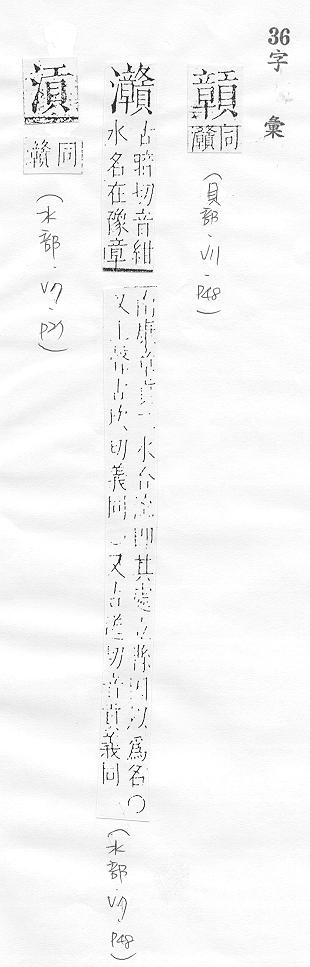 36字彙
同灨
（貝部·V11·P48）
灨
古暗切音紺
水名在豫章
南康章貢二水合流即其處立縣因以爲名○
又上聲古坎切義同○又古送切音貢義同
（水部·V7·P48）
同贛
（水部·V7·P27）